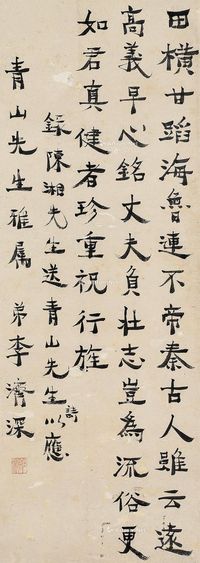 田橫甘蹈海魯連不帝秦古人雖云遠
高義早心銘丈夫負壯志豈為流俗更
如君真健者珍重祝行旌
錄陳湘先生送青山先生詩以應
青山先生雅屬 弟李濟深